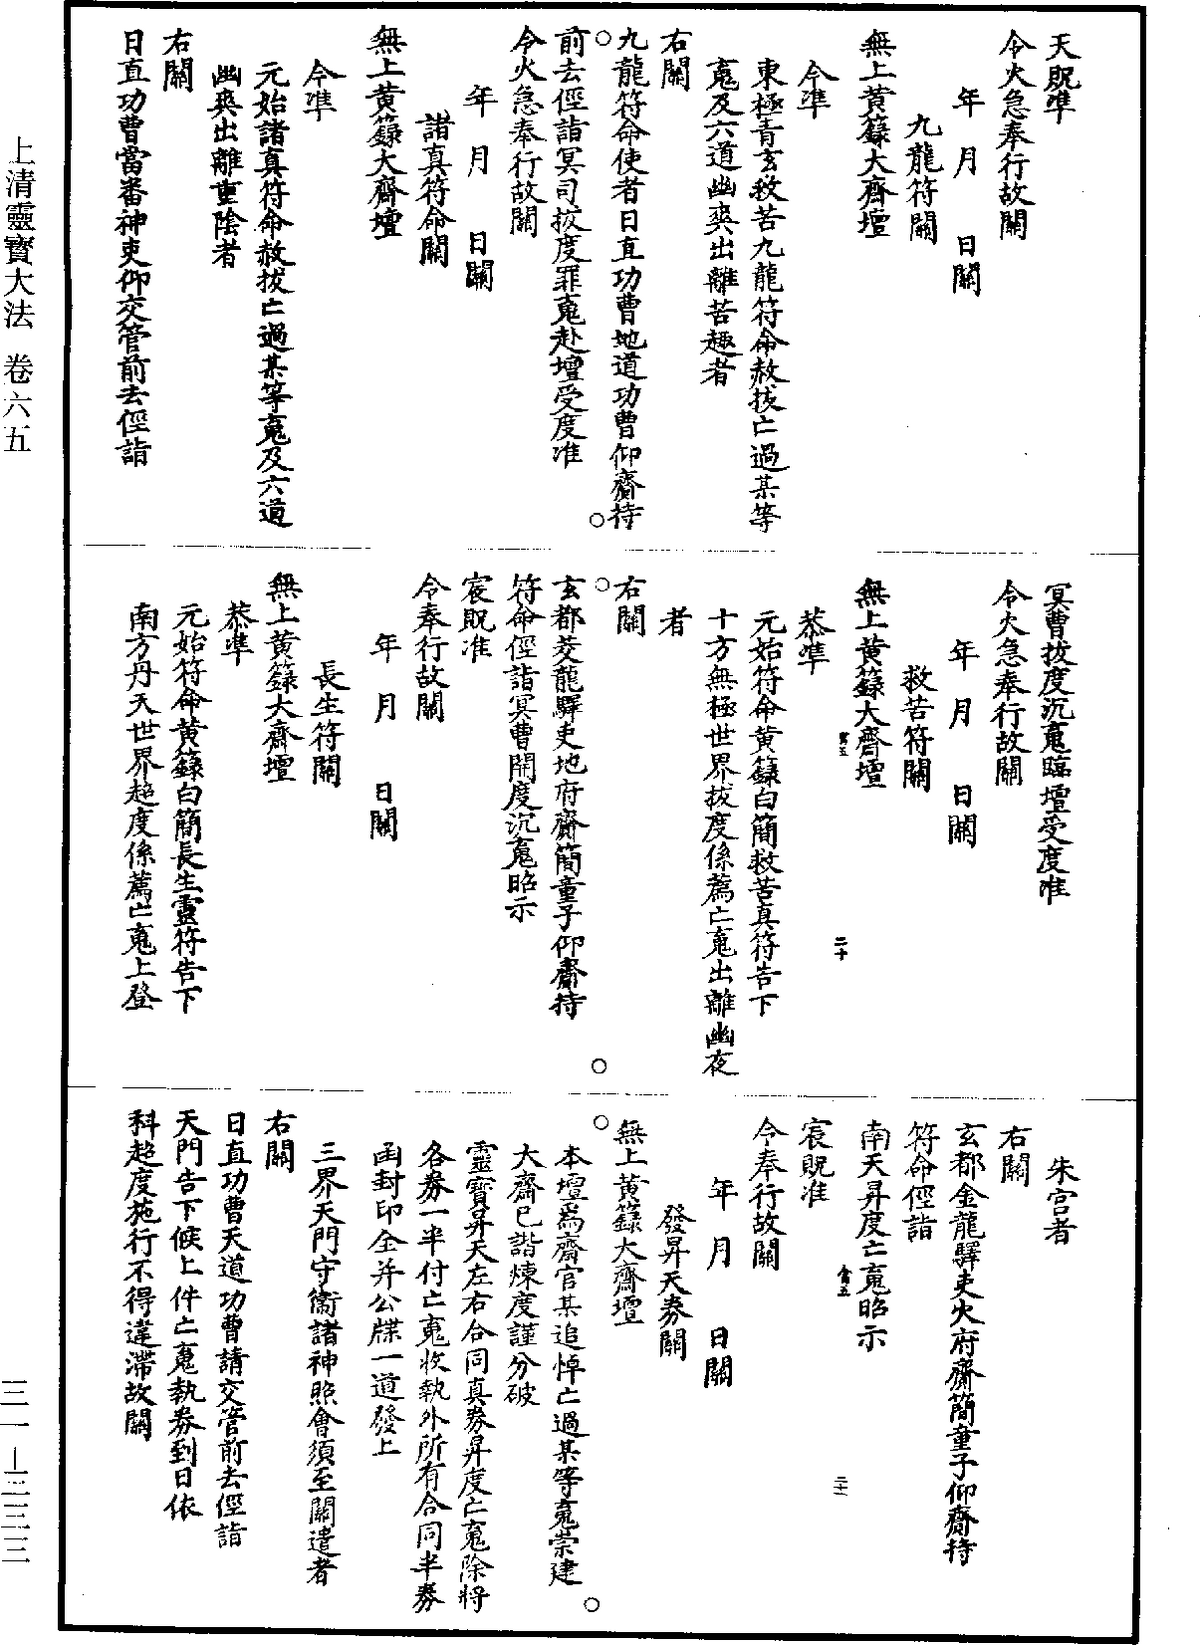 天貺準
令火急奉行故關
年　月　日關
九龍符關
無上黃籙大齋壇
今準
東極青玄救苦九龍符命赦拔亡過某等
䰟及六道幽爽出離苦趣者
右關
九龍符命使者日直功曹地道功曹仰齎持
前去徑詣冥司拔度罪䰟赴壇受度准
令火急奉行故關
年　月　日關
諸真符命關
無上黃籙大齋壇
今準
元始諸真符命赦拔亡過某等䰟及六道
幽爽出離重陰者
右關
日直功曹當番神吏仰交管前去徑詣
冥曹拔度沉䰟臨壇受度准
令火急奉行故關
年　月　日關
救苦符關
無上黃籙大齋壇
恭準
元始符命黃籙白簡救苦真符告下
十方無極世界拔度係薦亡䰟出離幽夜
者
右關
玄都茭龍驛吏地府齎簡童子仰齎持
符命徑詣冥曹開度沉䰟昭示
宸貺准
令奉行故關
年　月　日關
長生符關
無上黃籙大齋壇
恭準
元始符命黃籙白簡長生靈符告下
南方丹天世界超度係薦亡䰟上登
朱宮者
右關
玄都金龍驛吏火府齎簡童子仰齎持
符命徑詣
南天昇度亡䰟昭示
宸貺准
令奉行故關
年　月　日關
發昇天券關
無上黃籙大齋壇
本壇爲齋官某追悼亡過某等䰟崇建
大齋已諧煉度謹分破
靈寶昇天左右合同真券昇度亡䰟除將
各券一半付亡䰟收執外所有合同半券
函封印全并公牒一道發上
三界天門守衞諸神照會須至關遣者
右關
日直功曹天道功曹請交管前去徑詣
天門告下候上件亡䰟執券到日依
科超度施行不得違滯故關
上清靈寶大法　卷六五
三一—三三三
二十
二十一